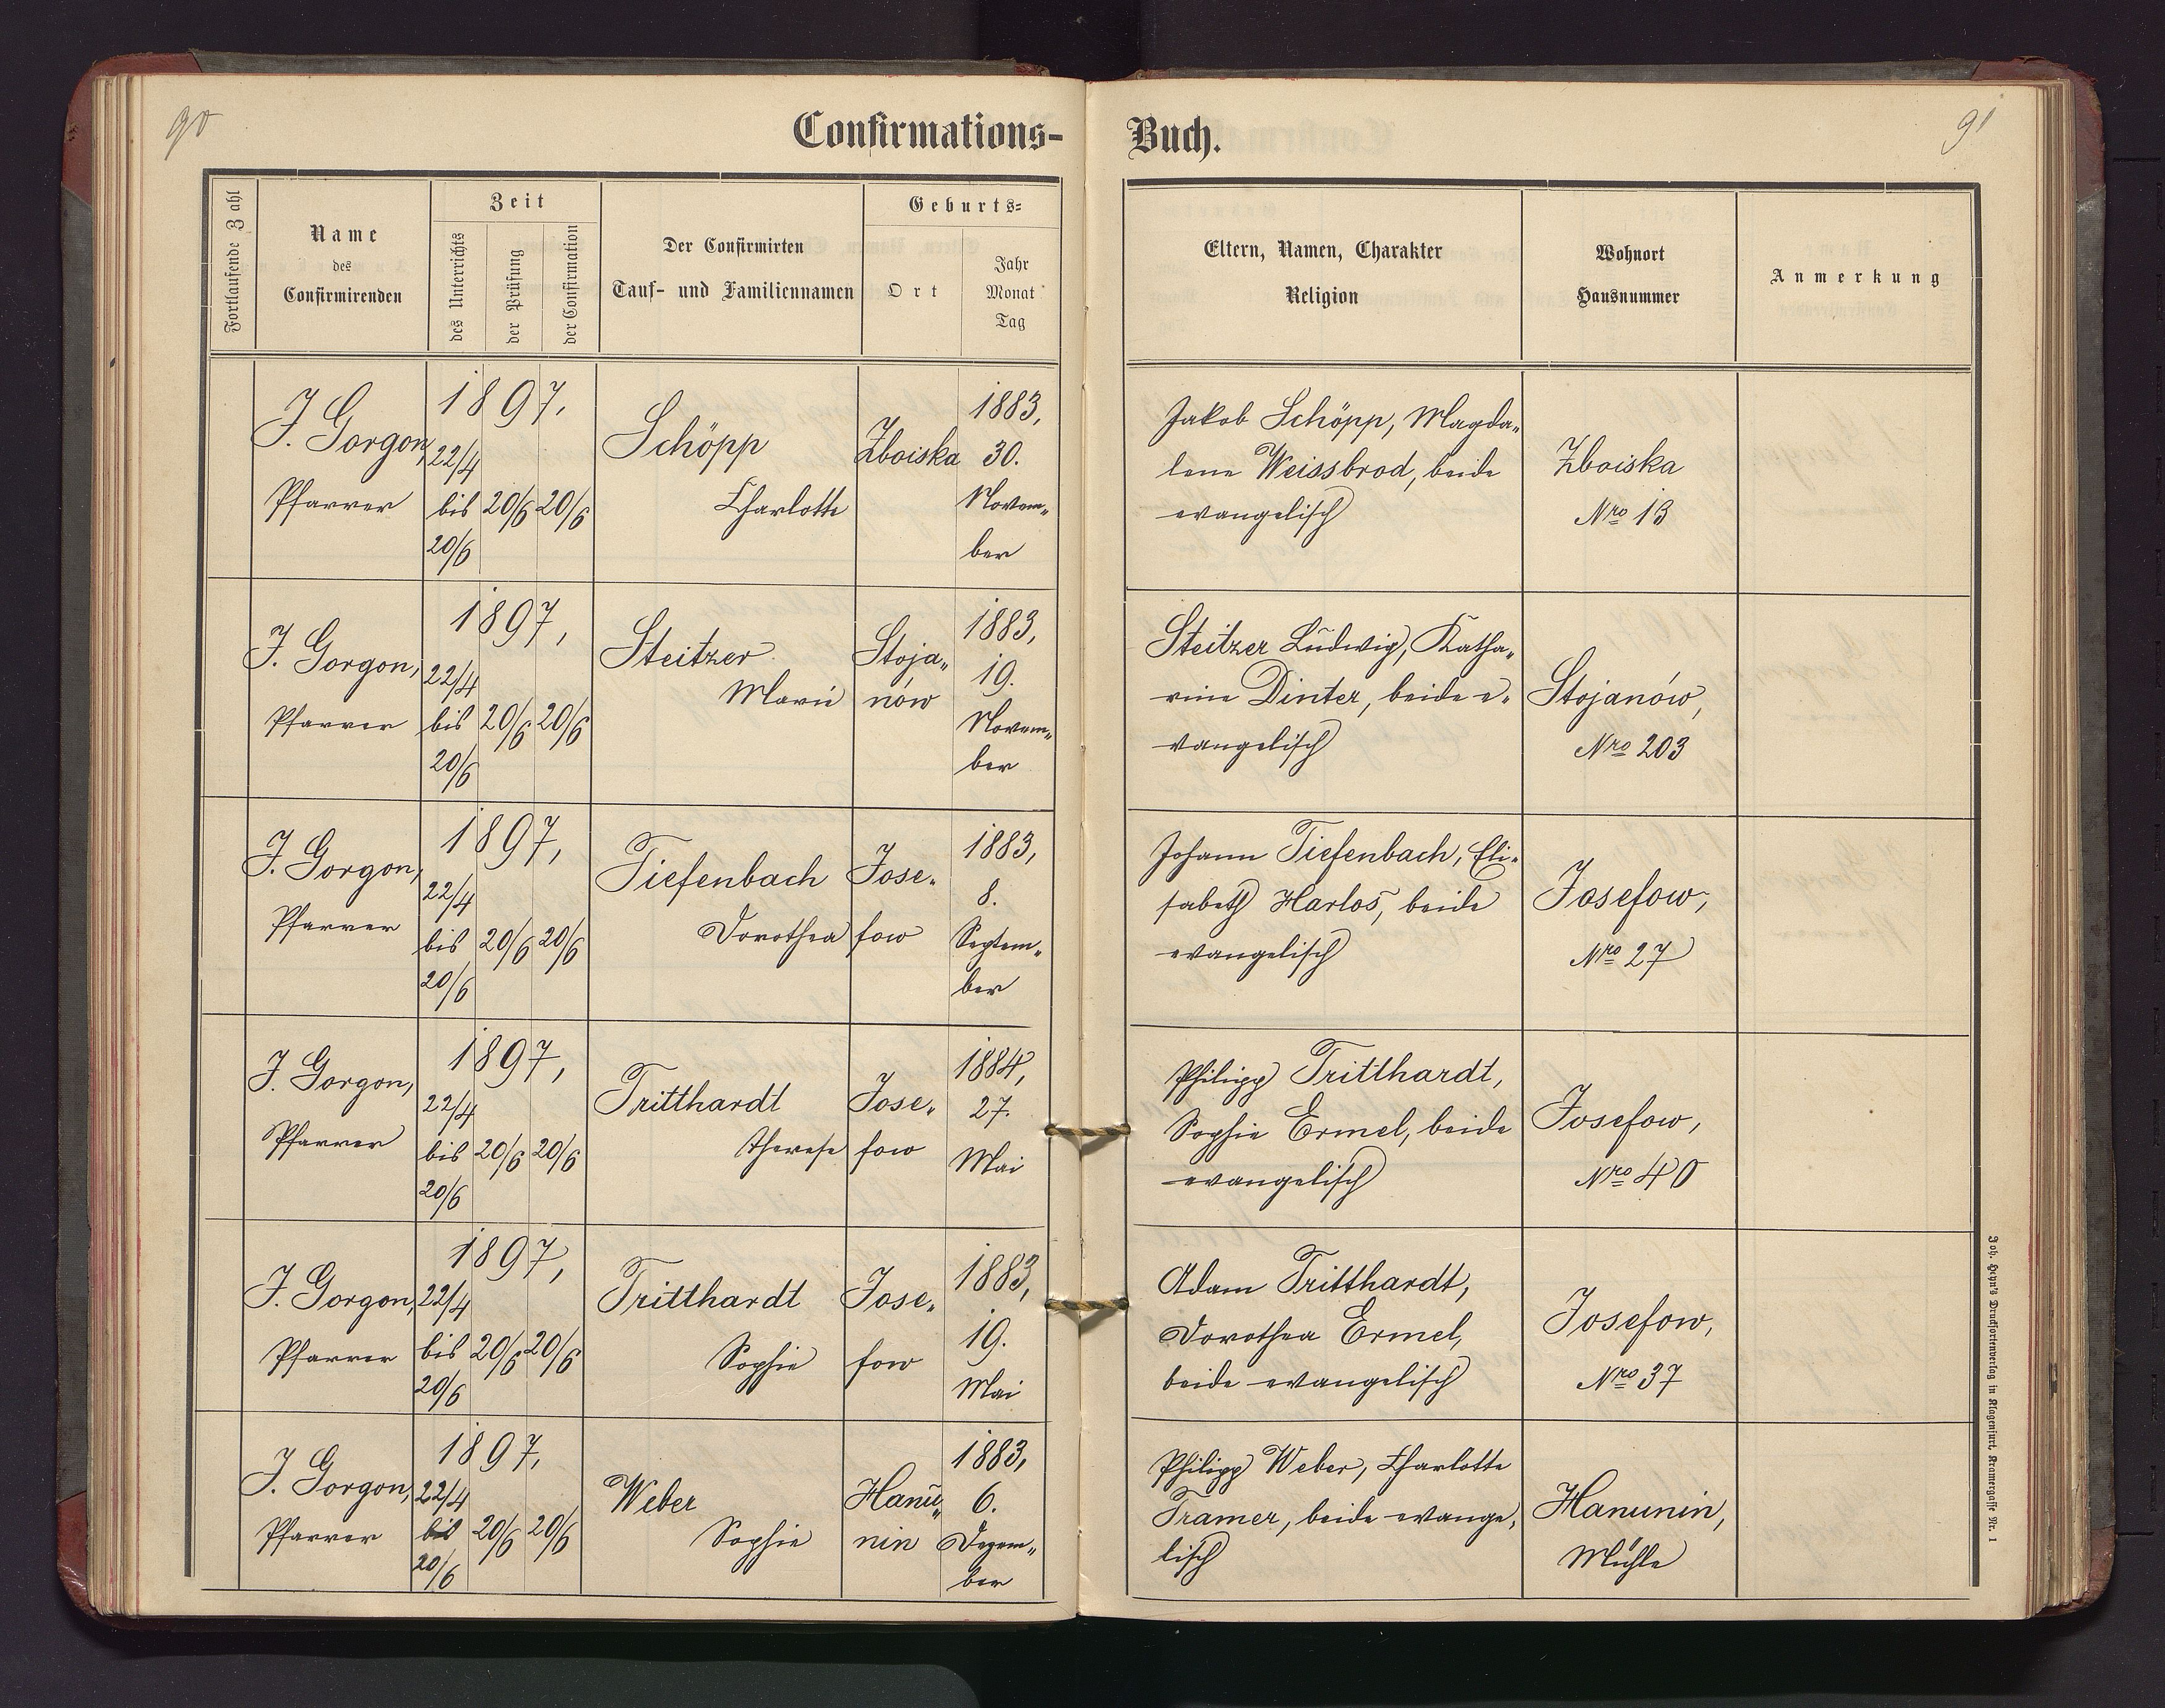 90
Confirmations-
Buch.
91
Fortlaufende Zahl
Name
des
Confirmirenden
Zeit
des Unterrichts
der Prüfung
der Confirmation
Der Confirmirten
Tauf- und Familiennamen
Geburts-
Ort
Jahr
Monat
Tag
Eltern, Namen, Charakter
Religion
Wohnort
Hausnummer
Anmerkung
J. Gorgon,
Pfarrer
1897,
22/4
bis
20/6
20/6
20/6
Schöpp
Charlotte
Zboiska
1883,
30.
Novem„
ber
Jakob Schöpp, Magda„
lena Weissbrod, beide
evangelisch
Zboiska
Nro 13
J. Gorgon,
Pfarrer
1897,
22/4
bis
20/6
20/6
20/6
Steitzer
Marie
Stoja„
nów
1883,
19.
Novem„
ber
Steitzer Ludwig, Katha„
rine Dinter, beide e„
vangelisch
Stojanów,
Nro 203
J. Gorgon,
Pfarrer
1897,
22/4
bis
20/6
20/6
20/6
Tiefenbach
Dorothea
Jose„
fow
1883,
8.
Septem„
ber
Johann Tiefenbach, Eli„
sabeth Harlos, beide
evangelisch
Josefow,
Nro 27
J. Gorgon,
Pfarrer
1897,
22/4
bis
20/6
20/6
20/6
Tritthardt
Therese
Jose„
fow
1884,
27.
Mai
Philipp Tritthardt,
Sophie Ermel, beide
evangelisch
Josefow,
Nro 40
J. Gorgon,
Pfarrer
1897,
22/4
bis
20/6
20/6
20/6
Tritthardt
Sophie
Jose„
fow
1883,
19.
Mai
Adam Tritthardt,
Dorothea Ermel,
beide evangelisch
Josefow,
Nro 37
J. Gorgon,
Pfarrer
1897,
22/4
bis
20/6
20/6
20/6
Weber
Sophie
Hanu„
nin
1883,
6.
Dezem„
ber
Philipp Weber, Charlotte
Tramer, beide evange„
lisch
Hanunin,
Mühle
Joh. Heyn's Drucksortenverlag in Klagenfurt, Kramergasse Nr. 1